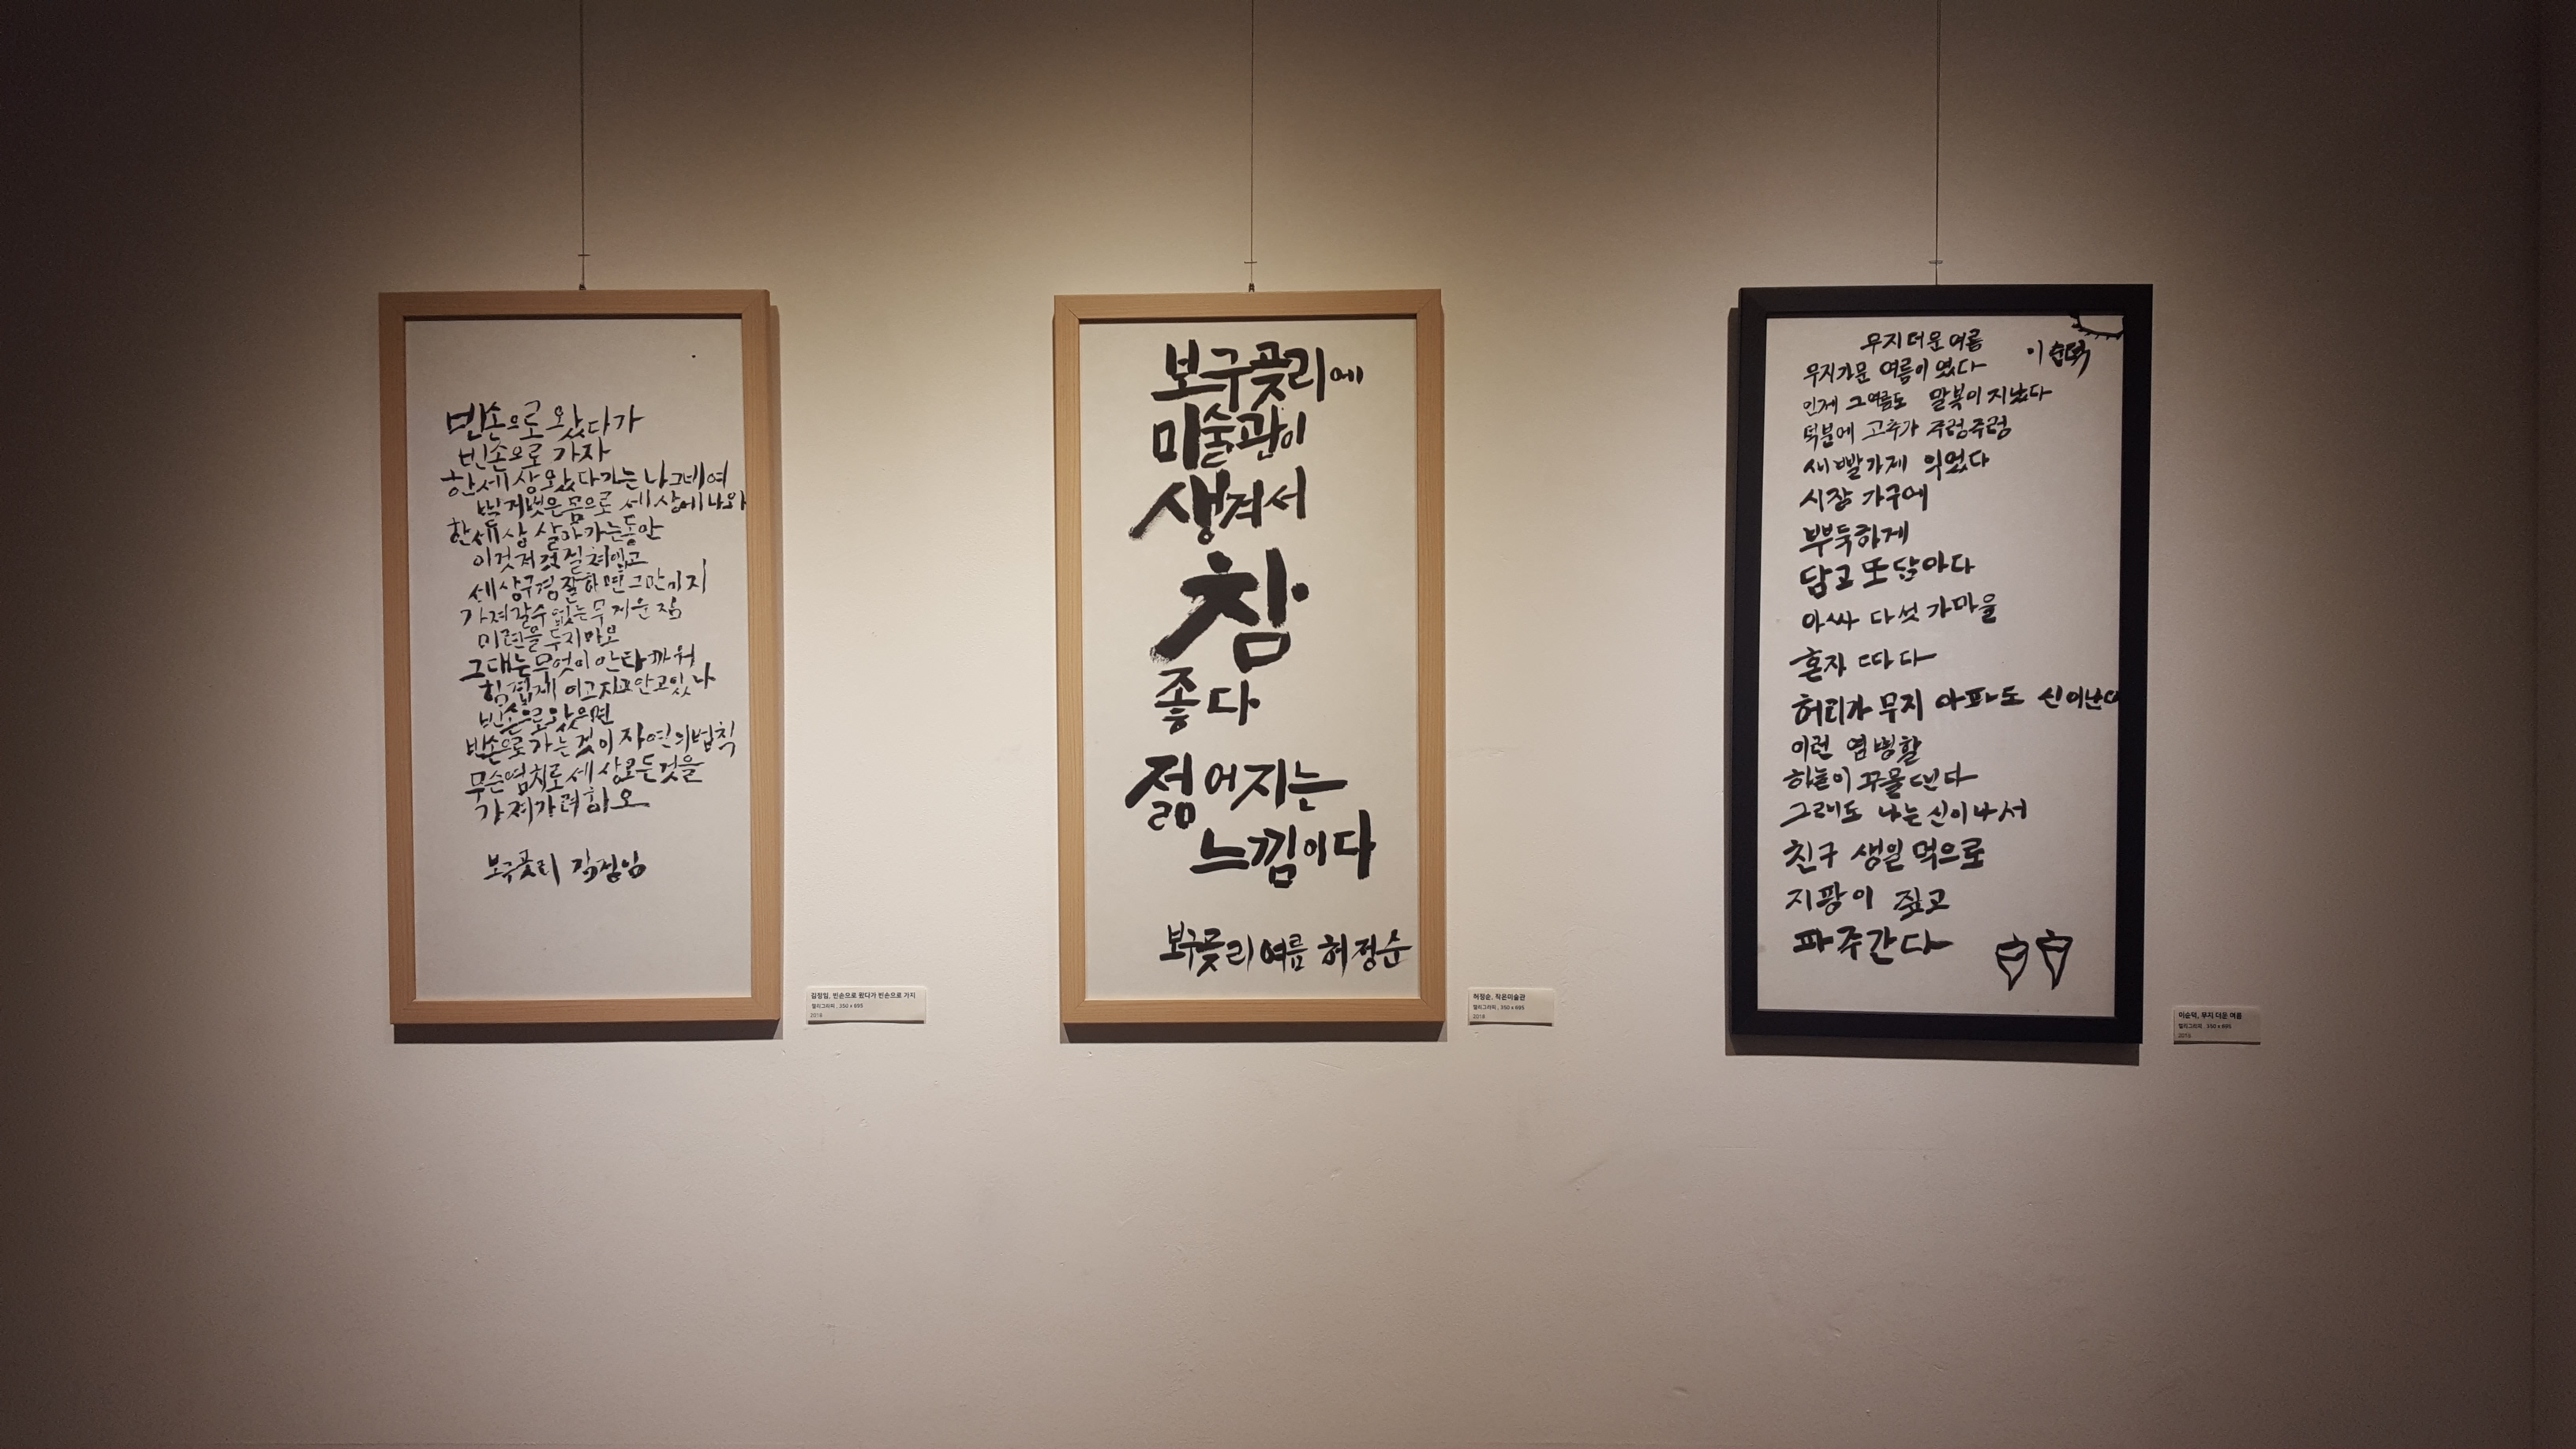 빈손으로 왔다가
빈손으로 가자
한세상 왔다가는 나그네여
세상에 나와
한세상 살아가는동안
이것저것 질쳐메고
세상구경 잘하면 그만이지
가져갈수 없는 무거운 짐
미련을 두지마오
그대는 무엇이 안타까워
힘겹게 이고지고안고있나
빈손으로 왔으면
빈손으로 가는 것이 자연의법칙
무슨염치로 세상모든것을
가져가려하오
보구곶리 김정임
김정임, 빈손으로 왔다가 빈손으로 가지
캘리그라피, 350 x 695
2018
보구곶리에
미술관이
생겨서
참
좋다
젊어지는
느낌이다
보구곶리 여름 허정순
허정순, 작은미술관
캘리그라피, 350 x 695
2018
무지더운여름
이순덕
무지가문 여름이 였다
인제 그여름도 말복이 지났다
덕분에 고추가 주렁주렁
새빨가제 익었다
시장 가구에
뿌둑하게
담고 또 담아다
아싸 다섯 가마을
혼자 따다
허리가 무지 아파도 신이난다
이런 염병할
하늘이 꾸물댄다
그래도 나는 신이나서
친구 생일 먹으로
지팡이 짚고
파주간다
이순덕, 무지 더운 여름
캘리그라피, 350 x 695